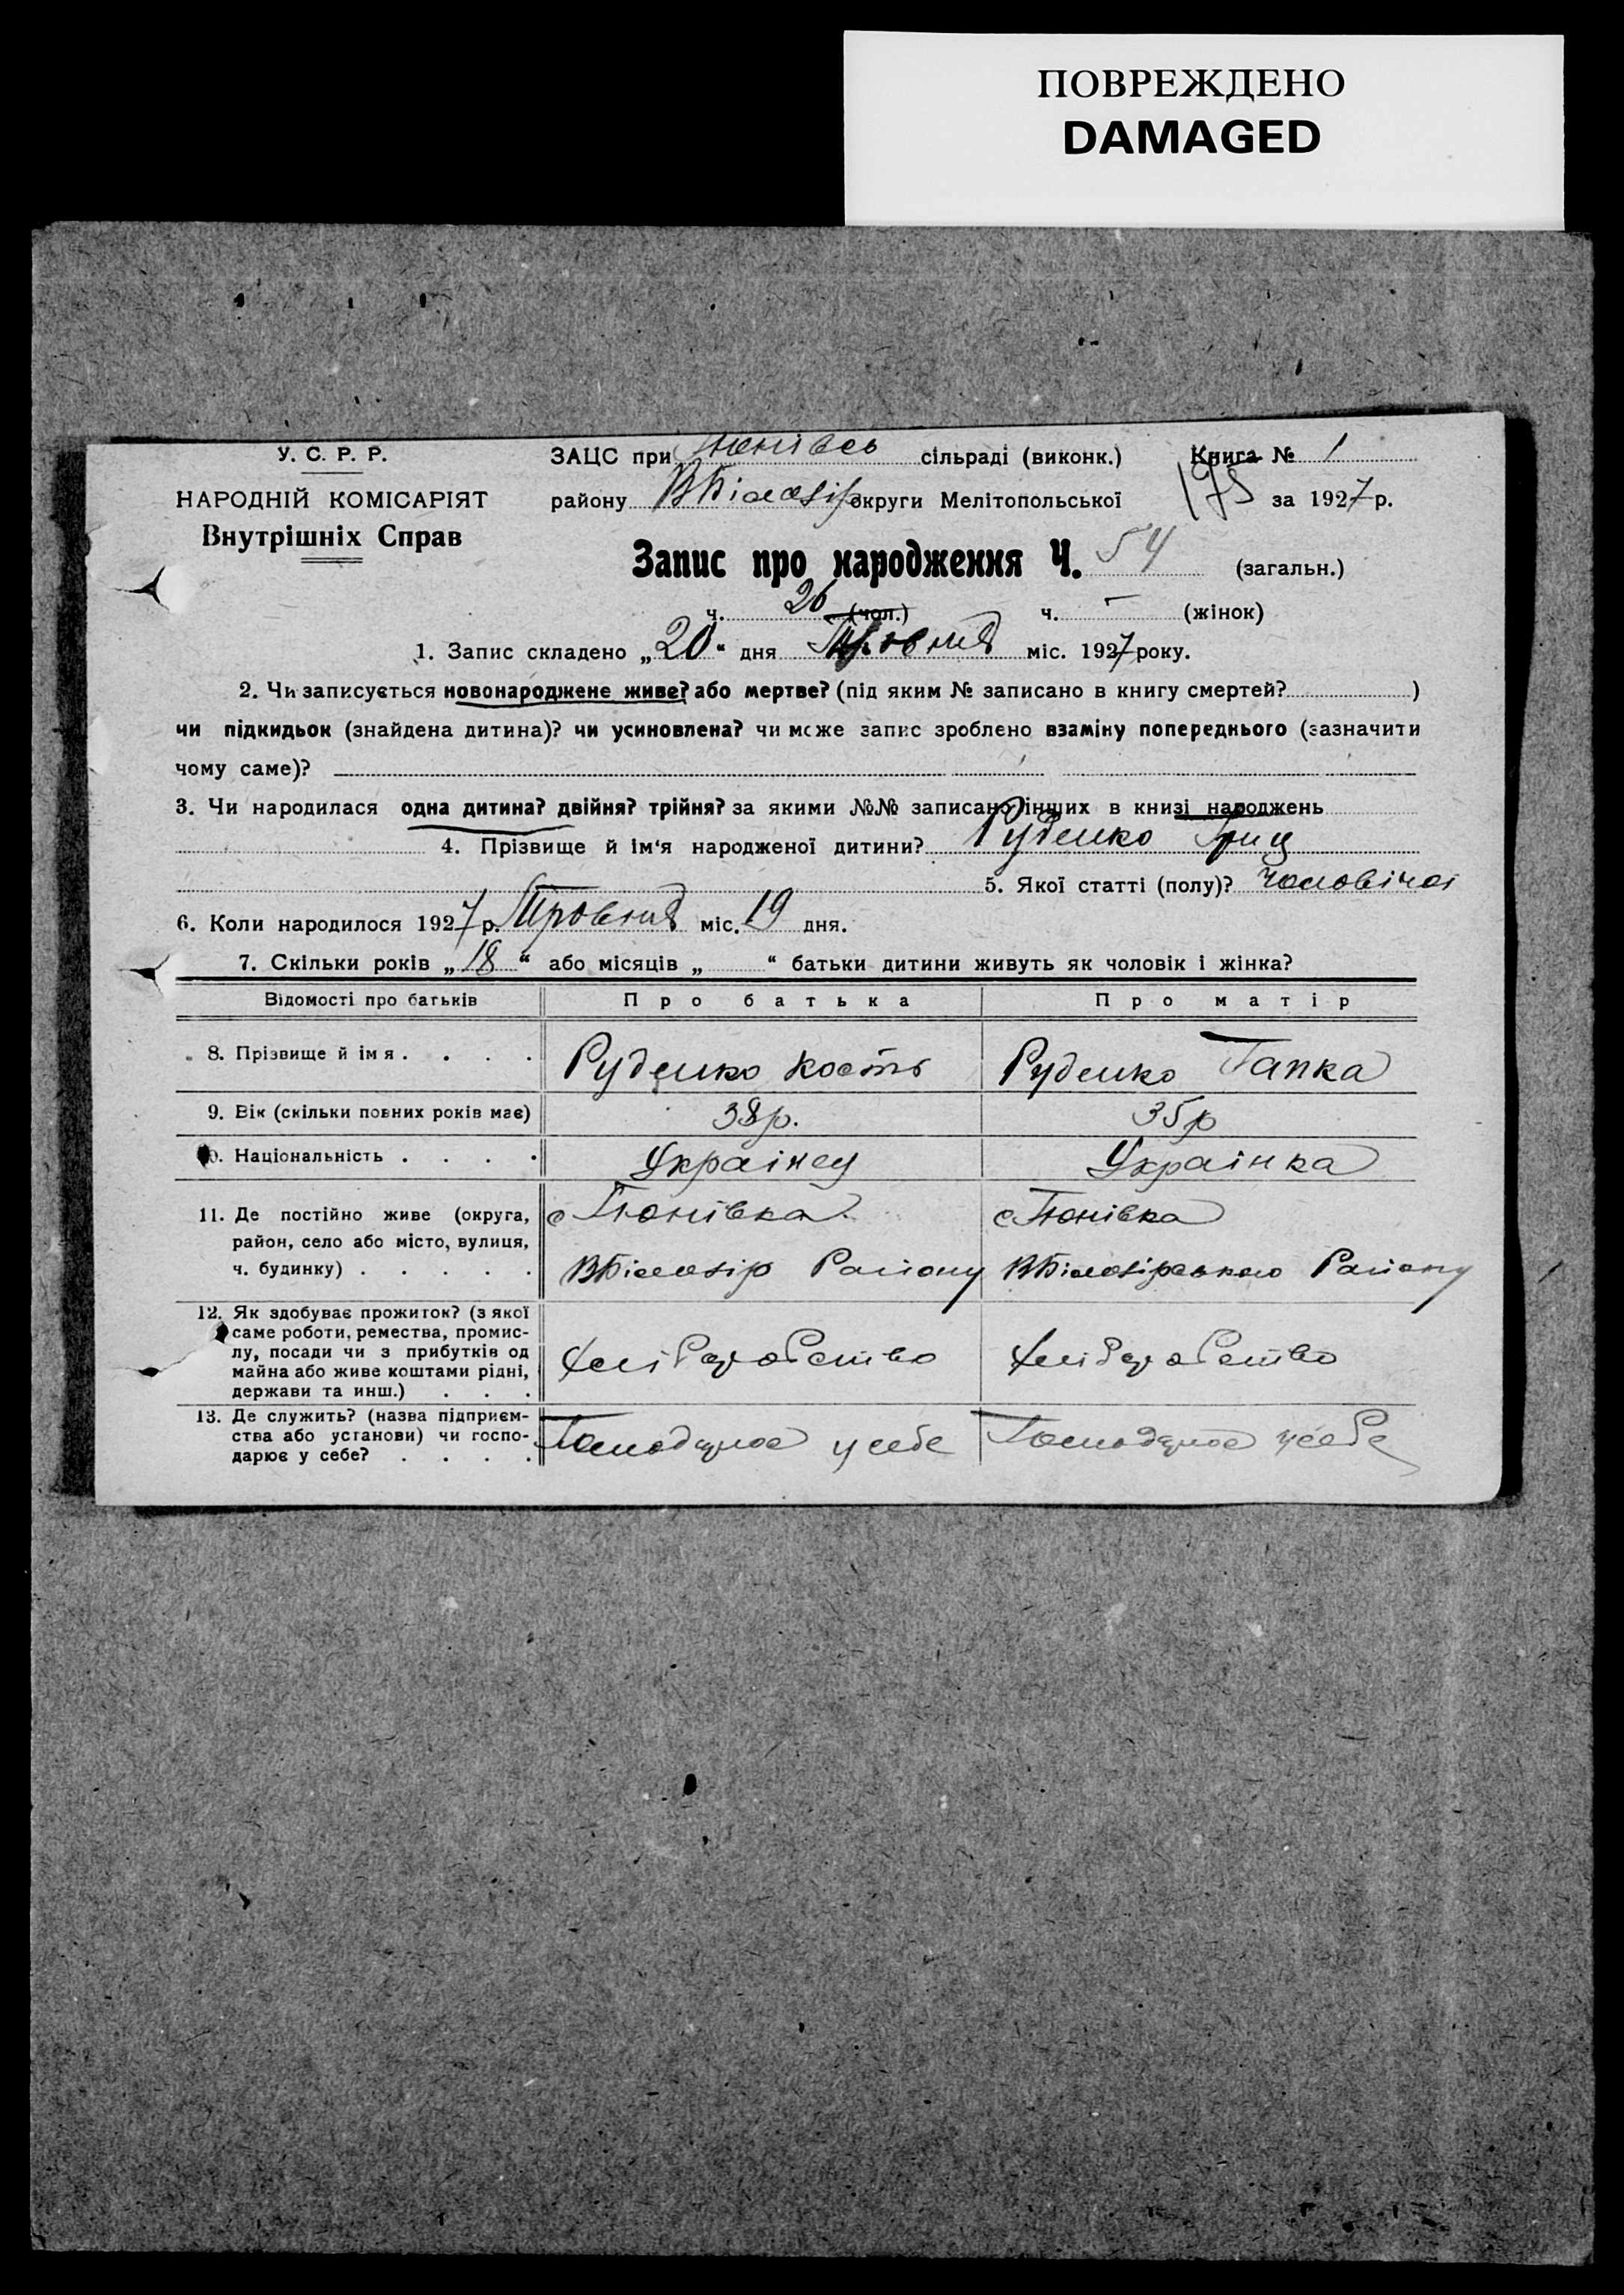 ПОВРЕЖДЕНО
DAMAGED
У. С. Р. Р.
НАРОДНІЙ КОМІСАРІЯТ
Внутрішніх Справ
ЗАЦС при Тюнівсь сільраді (виконк.) Книга № 1
району ВБілозір округи Мелітопольської 175 за 1927 р.
Запис про народження Ч. 54 (загальн.)
ч. 26 (чол.) ч. - (жінок)
1. Запис складено „20“ дня міс. 1927 року.
2. Чи записується новонароджене живе? або мертве? (під яким № записано в книгу смертей? )
чи підкидьок (знайдена дитина)? чи усиновлена? чи може запис зроблено взаміну попереднього (зазначити
чому саме)?
3. Чи народилася одна дитина? двійня? трійня? за якими №№ записано інших в книзі народжень
4. Прізвище й ім'я народженої дитини? Руденко Гриц
5. Якої статті (полу)? Чоловічої
6. Коли народилося 1927 р. міс. 19 дня.
7. Скільки років „18“ або місяців „ “ батьки дитини живуть як чоловік і жінка?
Відомості про батьків Про батька Про матір
8. Прізвище й імя . . . . Руденко Кость Руденко Гапка
9. Вік (скільки повних років має) 38р. 35р
10. Національність . . . . Українец Українка
11. Де постійно живе (округа, с Тюнівка с Тюнівка
район, село або місто, вулиця,
ч. будинку) . . . . . ВБілозір Району ВБілозірського Району
12. Як здобуває прожиток? (з якої
саме роботи, ремества, промис-
лу, посади чи з прибутків од Хліборобство Хліборобство
майна або живе коштами рідні,
держави та инш.) . . .
13. Де служить? (назва підприєм-
ства або установи) чи госпо- Господарює у себе Господарює у себе
дарює у себе? . . . .